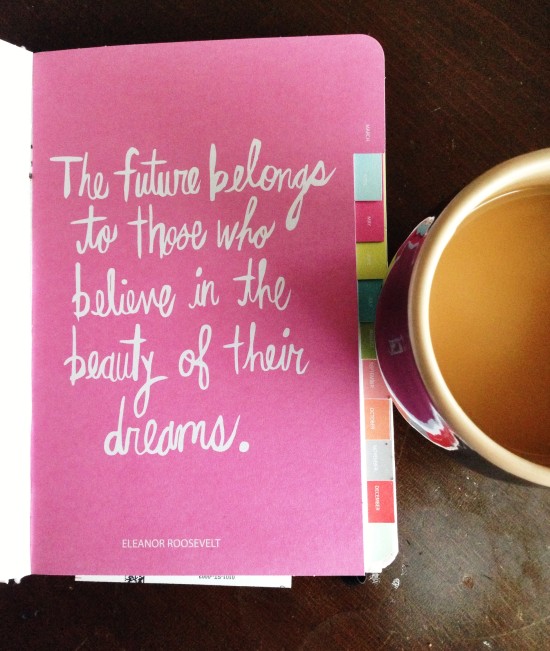 The future belongs
to those who
believe in the
beauty of their
dreams.
ELEANOR ROOSEVELT
MARCH
MAY
OCTOBER
DECEMBER